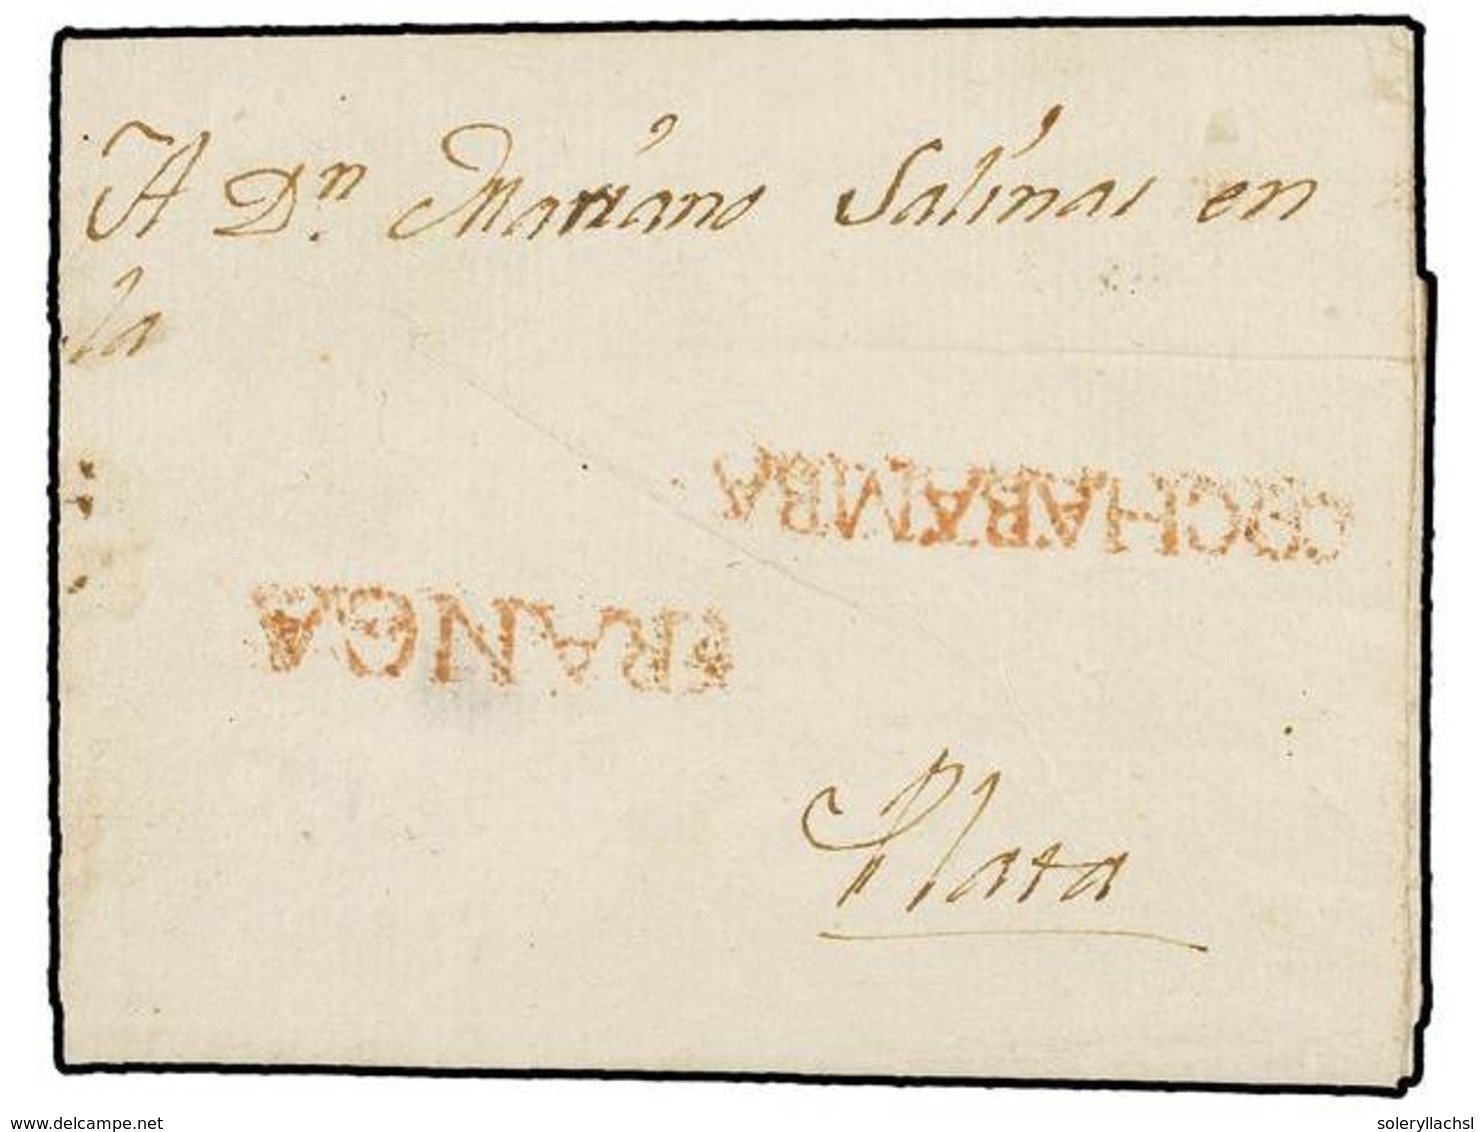 A Dn. Mariano Salinas en
la
COCHABAMBA
FRANCA
Plata
www.delcampe.net
soleryllachsl